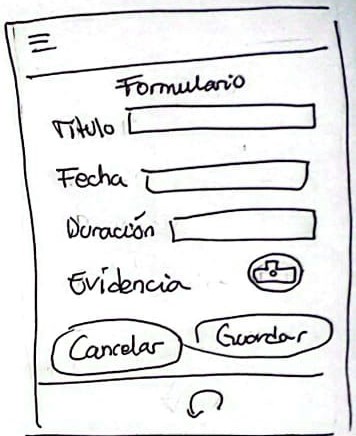 Formulario
Título
Fecha
Duración
Evidencia
Cancelar Guardar